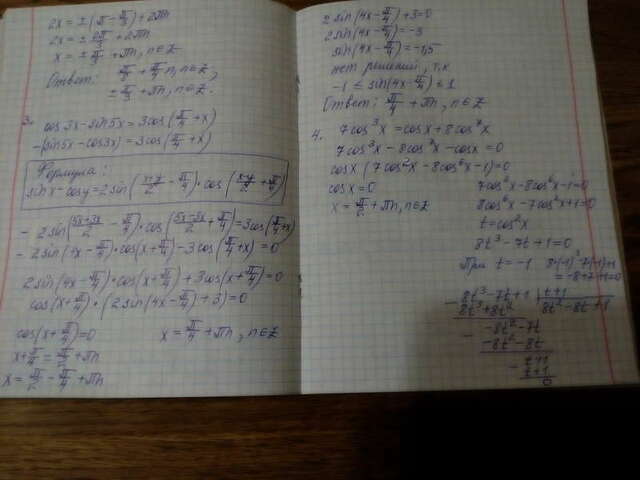 2x = ± (π - π/3) + 2πn
2x = ± 2π/3 + 2πn
x = ± π/3 + πn, n∈Z
Ответ: π/4 + π/4 n, n∈Z,
± π/3 + πn, n∈Z.
3. cos3x - sin5x = 3cos(π/4 + x)
-(sin5x - cos3x) = 3cos(π/4 + x)
Формула:
sinx - cosy = 2sin((x+y)/2 - π/4) · cos((x-y)/2 + π/4)
- 2sin((5x+3x)/2 - π/4) · cos((5x-3x)/2 + π/4) = 3cos(π/4 + x)
- 2sin(4x - π/4) · cos(x + π/4) - 3cos(π/4 + x) = 0
2sin(4x - π/4) · cos(x + π/4) + 3cos(x + π/4) = 0
cos(x + π/4) · (2sin(4x - π/4) + 3) = 0
cos(x + π/4) = 0
x + π/4 = π/2 + πn
x = π/2 - π/4 + πn
x = π/4 + πn, n∈Z
2sin(4x - π/4) + 3 = 0
2sin(4x - π/4) = -3
sin(4x - π/4) = -1,5
нет решений, т.к
-1 ≤ sin(4x - π/4) ≤ 1
Ответ: π/4 + πn, n∈Z
4. 7cos³x = cosx + 8cos⁷x
7cos³x - 8cos⁷x - cosx = 0
cosx (7cos²x - 8cos⁶x - 1) = 0
cosx = 0
x = π/2 + πn, n∈Z
7cos²x - 8cos⁶x - 1 = 0
8cos⁶x - 7cos²x + 1 = 0
t = cos²x
8t³ - 7t + 1 = 0
При t = -1 8·(-1)³ - 7·(-1) + 1
= -8 + 7 + 1 = 0
8t³ - 7t + 1 | t + 1
8t³ + 8t² 8t² - 8t + 1
- 8t² - 7t
- 8t² - 8t
t + 1
t + 1
0